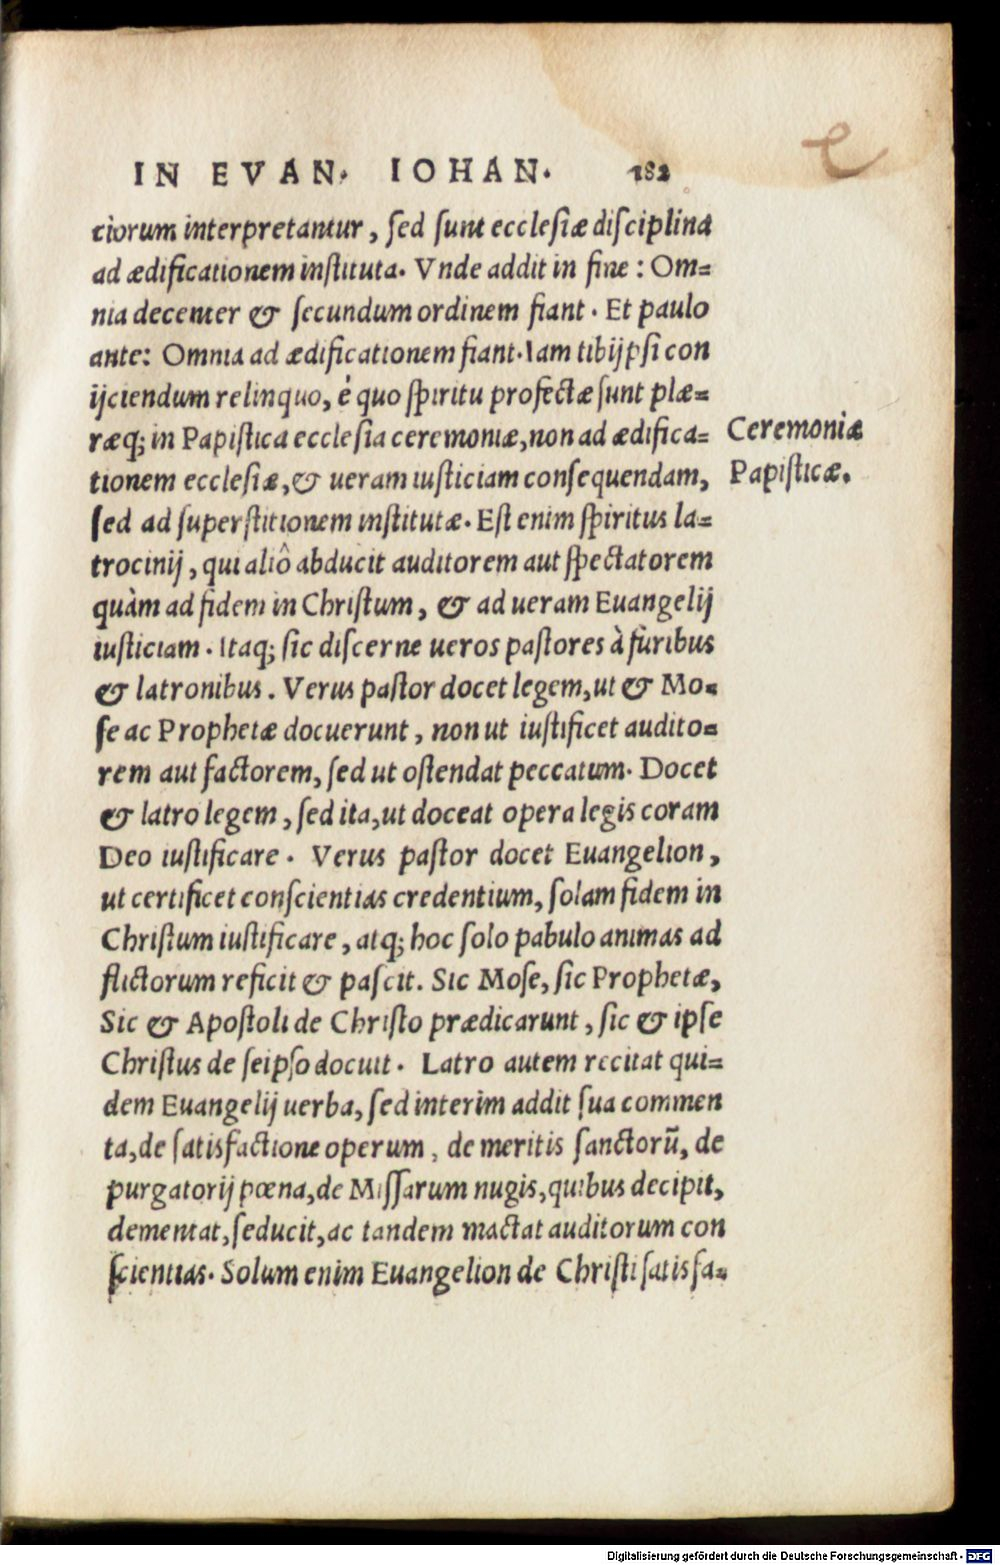 IN EVAN. IOHAN. 182
ciorum interpretantur, ſed ſunt eccleſiæ diſciplina
ad ædificationem inſtituta. Vnde addit in fine: Om=
nia decenter & ſecundum ordinem fiant. Et paulo
ante: Omnia ad ædificationem fiant. Iam tibi ipſi con
ijciendum relinquo, è quo ſpiritu profectæ ſunt plæ=
ræq; in Papiſtica eccleſia ceremoniæ, non ad ædifica=
Ceremoniæ
tionem eccleſiæ, & ueram iuſticiam conſequendam,
Papiſticæ.
ſed ad ſuperſtitionem inſtitutæ. Eſt enim ſpiritus la=
trocinij, qui aliô abducit auditorem aut ſpectatorem
quàm ad fidem in Chriſtum, & ad ueram Euangelij
iuſticiam. Itaq; ſic diſcerne ueros paſtores à furibus
& latronibus. Verus paſtor docet legem, ut & Mo=
ſe ac Prophetæ docuerunt, non ut iuſtificet audito=
rem aut factorem, ſed ut oſtendat peccatum. Docet
& latro legem, ſed ita, ut doceat opera legis coram
Deo iuſtificare. Verus paſtor docet Euangelion,
ut certificet conſcientias credentium, ſolam fidem in
Chriſtum iuſtificare, atq; hoc ſolo pabulo animas ad
flictorum reficit & paſcit. Sic Moſe, ſic Prophetæ,
Sic & Apoſtoli de Chriſto prædicarunt, ſic & ipſe
Chriſtus de ſeipſo docuit. Latro autem recitat qui=
dem Euangelij uerba, ſed interim addit ſua commen
ta, de ſatisfactione operum, de meritis ſanctorū, de
purgatorij pœna, de Miſſarum nugis, quibus decipit,
dementat, ſeducit, ac tandem mactat auditorum con
ſcientias. Solum enim Euangelion de Chriſti ſatisfa=
Digitalisierung gefördert durch die Deutsche Forschungsgemeinschaft - DFG